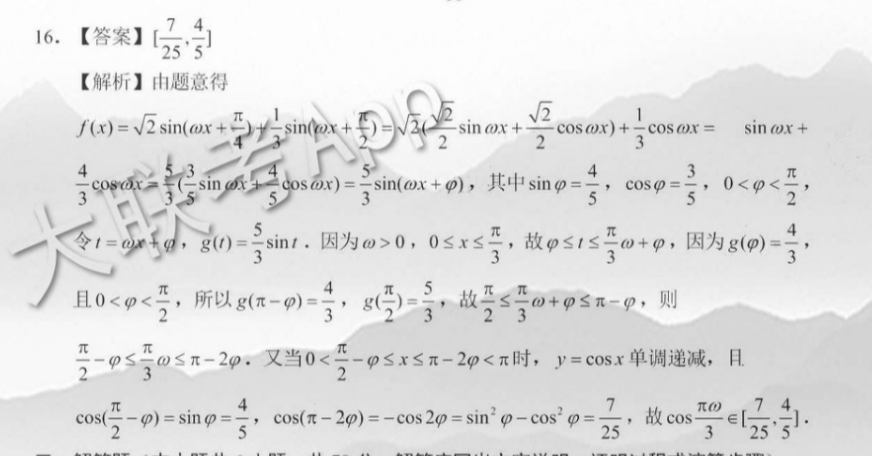 16. 【答案】[7/25, 4/5]
【解析】由题意得
f(x)=√2 sin(ωx+π/4)+1/3 sin(ωx+π/2)=√2(√2/2 sin ωx+√2/2 cos ωx)+1/3 cos ωx= sin ωx+
4/3 cos ωx=5/3(3/5 sin ωx+4/5 cos ωx)=5/3 sin(ωx+φ)，其中sin φ=4/5，cos φ=3/5，0<φ<π/2，
令t=ωx+φ，g(t)=5/3 sin t．因为ω>0，0≤x≤π/3，故φ≤t≤π/3 ω+φ，因为g(φ)=4/3，
且0<φ<π/2，所以g(π-φ)=4/3，g(π/2)=5/3，故π/2≤π/3 ω+φ≤π-φ，则
π/2-φ≤π/3 ω≤π-2φ．又当0<π/2-φ≤x≤π-2φ<π时，y=cos x单调递减，且
cos(π/2-φ)=sin φ=4/5，cos(π-2φ)=-cos 2φ=sin² φ-cos² φ=7/25，故cos πω/3∈[7/25, 4/5]．
大联考App